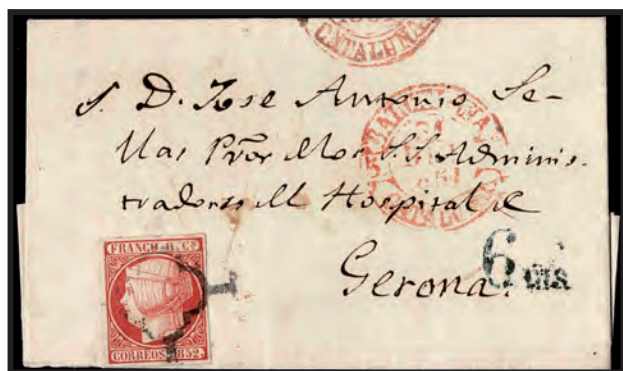 CATALUÑA
S. D. Jose Antonio Se-
llas Pror. de los S.S. Adminis-
tradores del Hospital de
Gerona.
6 Cts
FRANCO 6 Cs
CORREOS 1852.